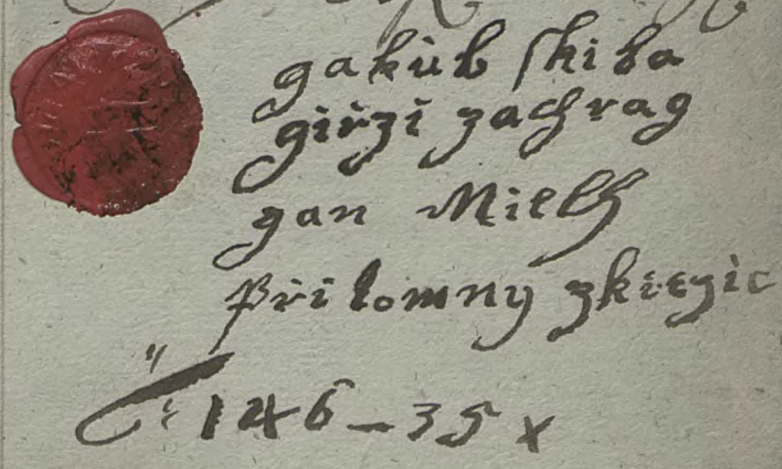 gakub skiba
girzi zachrag
gan Mielch
Přitomny
146 – 35 x